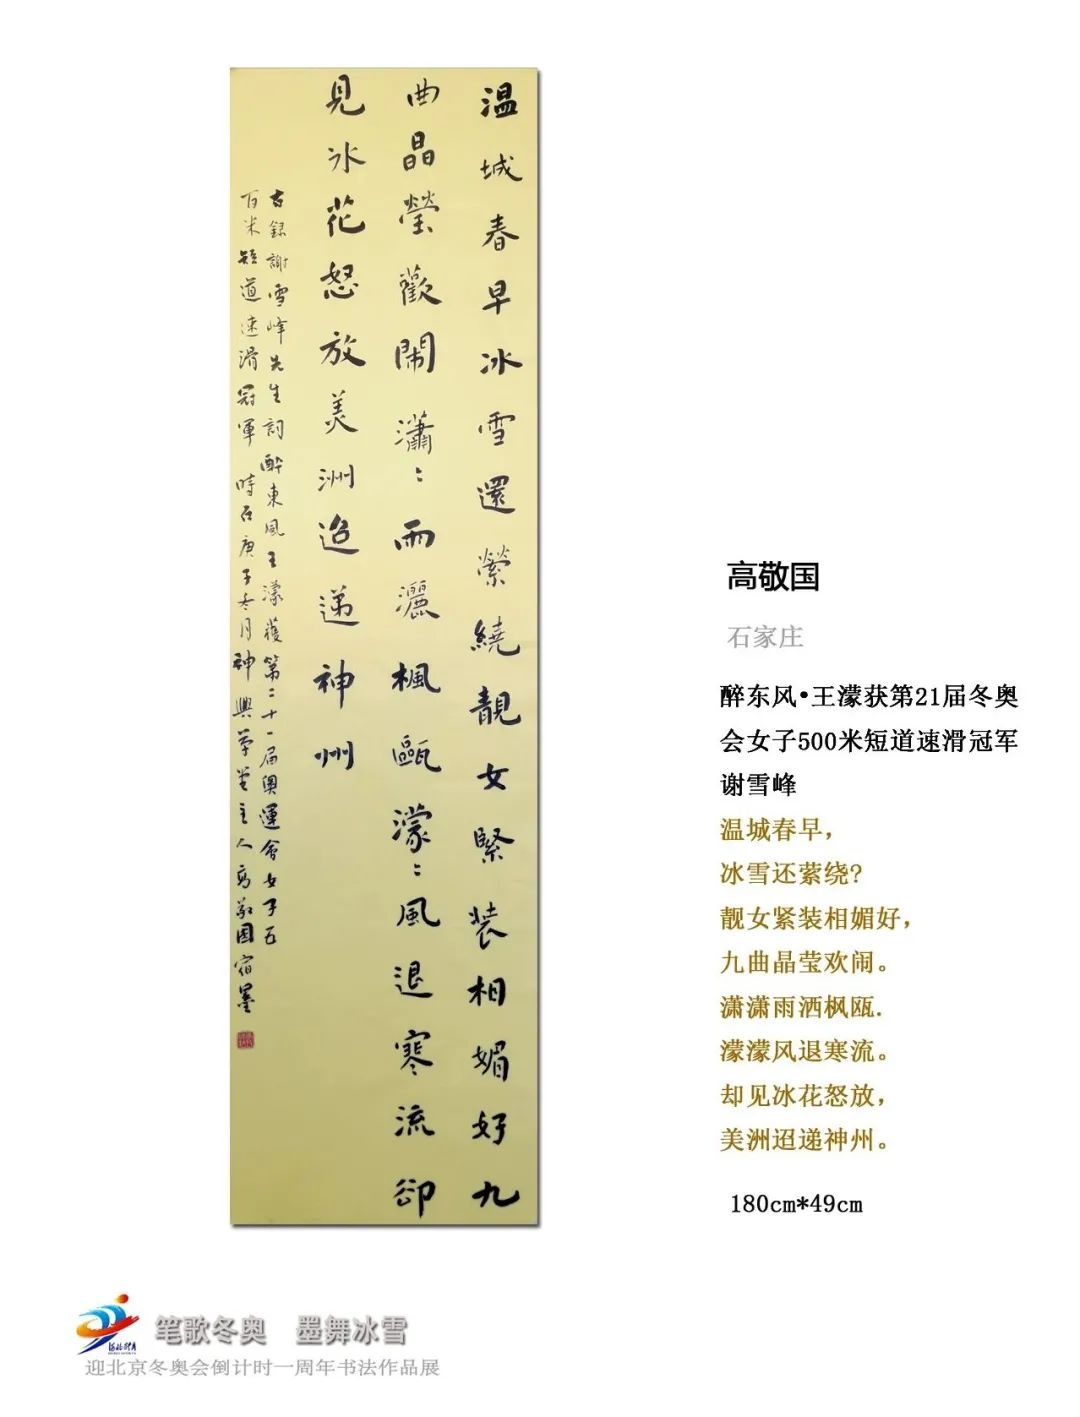 温城春早冰雪還縈繞靚女緊装相媚好九
曲晶瑩歡鬧瀟〻雨灑楓甌濛〻風退寒流卻
見冰花怒放美洲迢递神州
右録謝雪峰先生詞醉東風王濛獲第二十一届奥運會女子五
百米短道速滑冠軍時在庚子冬月神興草堂主人高敬国宿墨
高敬国
石家庄
醉东风•王濛获第21届冬奥
会女子500米短道速滑冠军
谢雪峰
温城春早，
冰雪还萦绕?
靓女紧装相媚好，
九曲晶莹欢闹。
潇潇雨洒枫瓯.
濛濛风退寒流。
却见冰花怒放，
美洲迢递神州。
180cm*49cm
河北体育
笔歌冬奥 墨舞冰雪
迎北京冬奥会倒计时一周年书法作品展